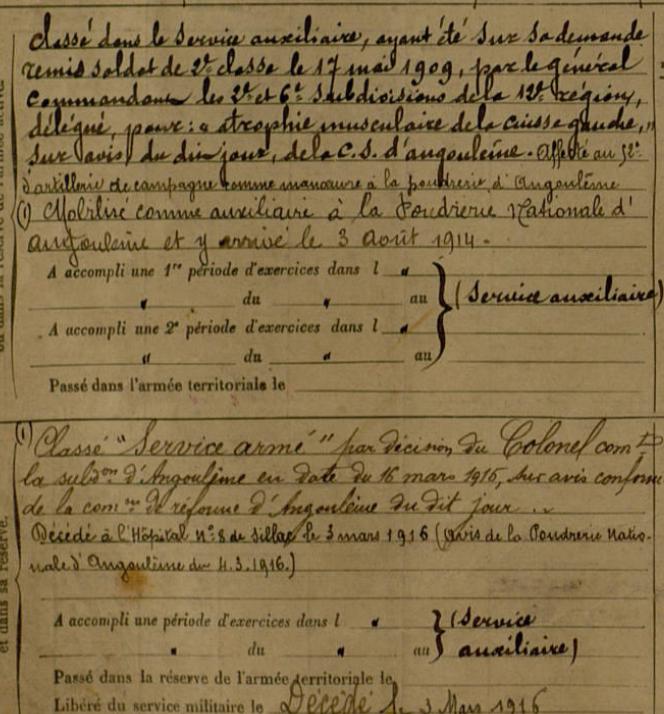 classé dans le service auxiliaire, ayant été sur sa demande
remis soldat de 2e classe le 17 mai 1909, par le général
commandant les 2e et 6e subdivisions de la 12e région,
délégué, pour : " atrophie musculaire de la cuisse gauche, "
sur avis, du dit jour, de la C.S. d'angoulème. Affecté au 52e
d'artillerie de campagne comme manœuvre à la poudrerie d'Angoulème
(1) Mobilisé comme auxiliaire à la Poudrerie Nationale d'
angoulème et y arrivé le 3 août 1914.
A accompli une 1re période d'exercices dans l "
" du " au } (Service auxiliaire)
A accompli une 2e période d'exercices dans l "
" du " au
Passé dans l'armée territoriale le
(1) Classé "Service armé" par décision du Colonel comt
la subdon d'Angoulême en date du 16 mars 1915, sur avis conforme
de la comon de réforme d'Angoulême du dit jour ..
Décédé à l'Hôpital N° 8 de Sillac le 3 mars 1916 (Avis de la Poudrerie Natio-
nale d'Angoulème du 4.3.1916.)
A accompli une période d'exercices dans l " } (Service
" du " au auxiliaire)
Passé dans la réserve de l'armée territoriale le
Libéré du service militaire le Décédé le 3 Mars 1916
et dans sa réserve.